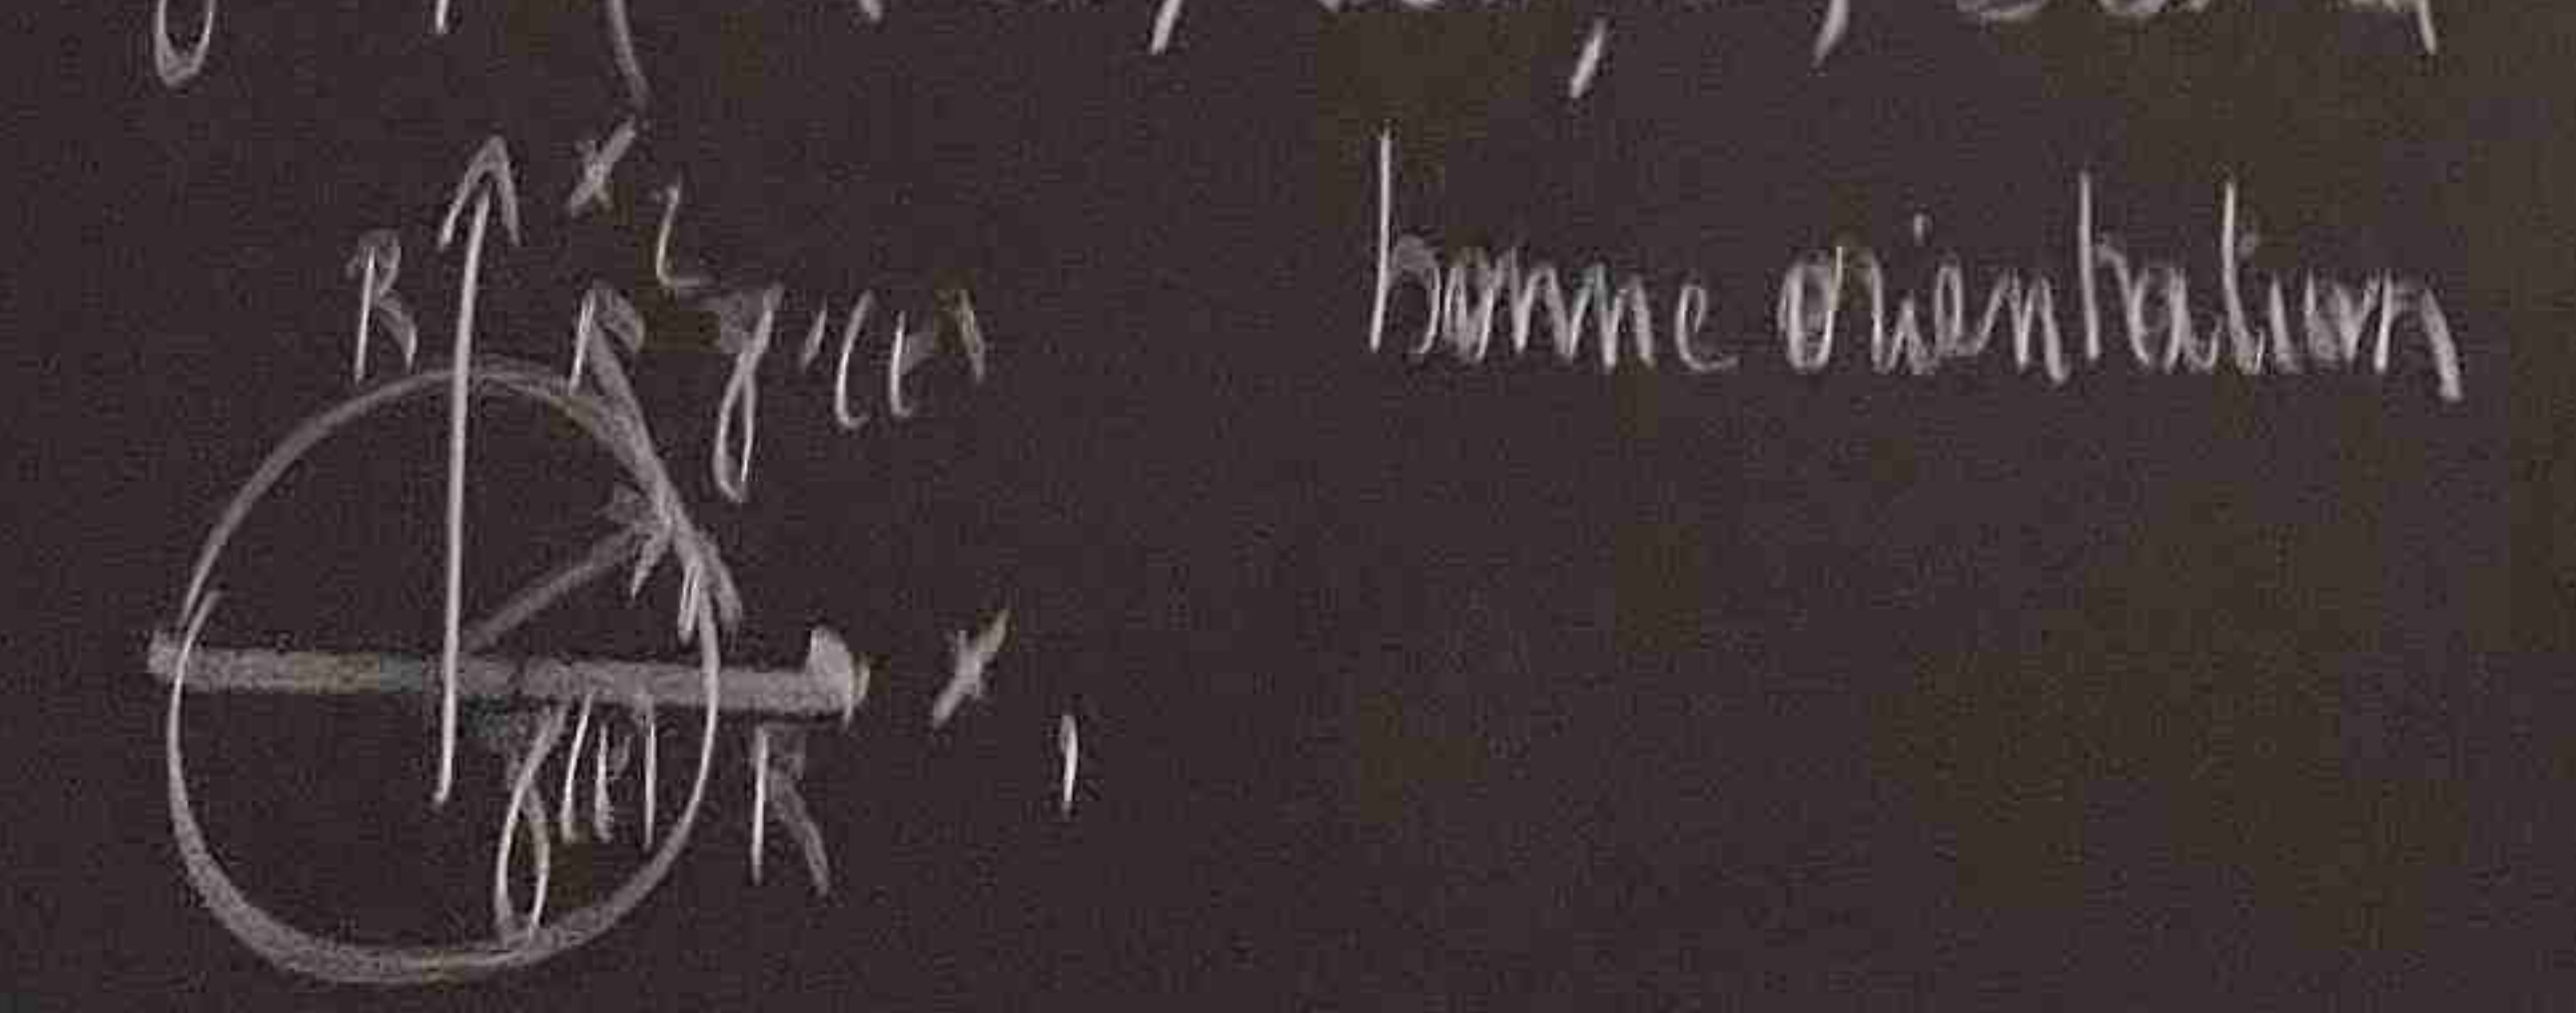 x2
R
γ'(t)
bonne orientation
x1
γ(t)
R